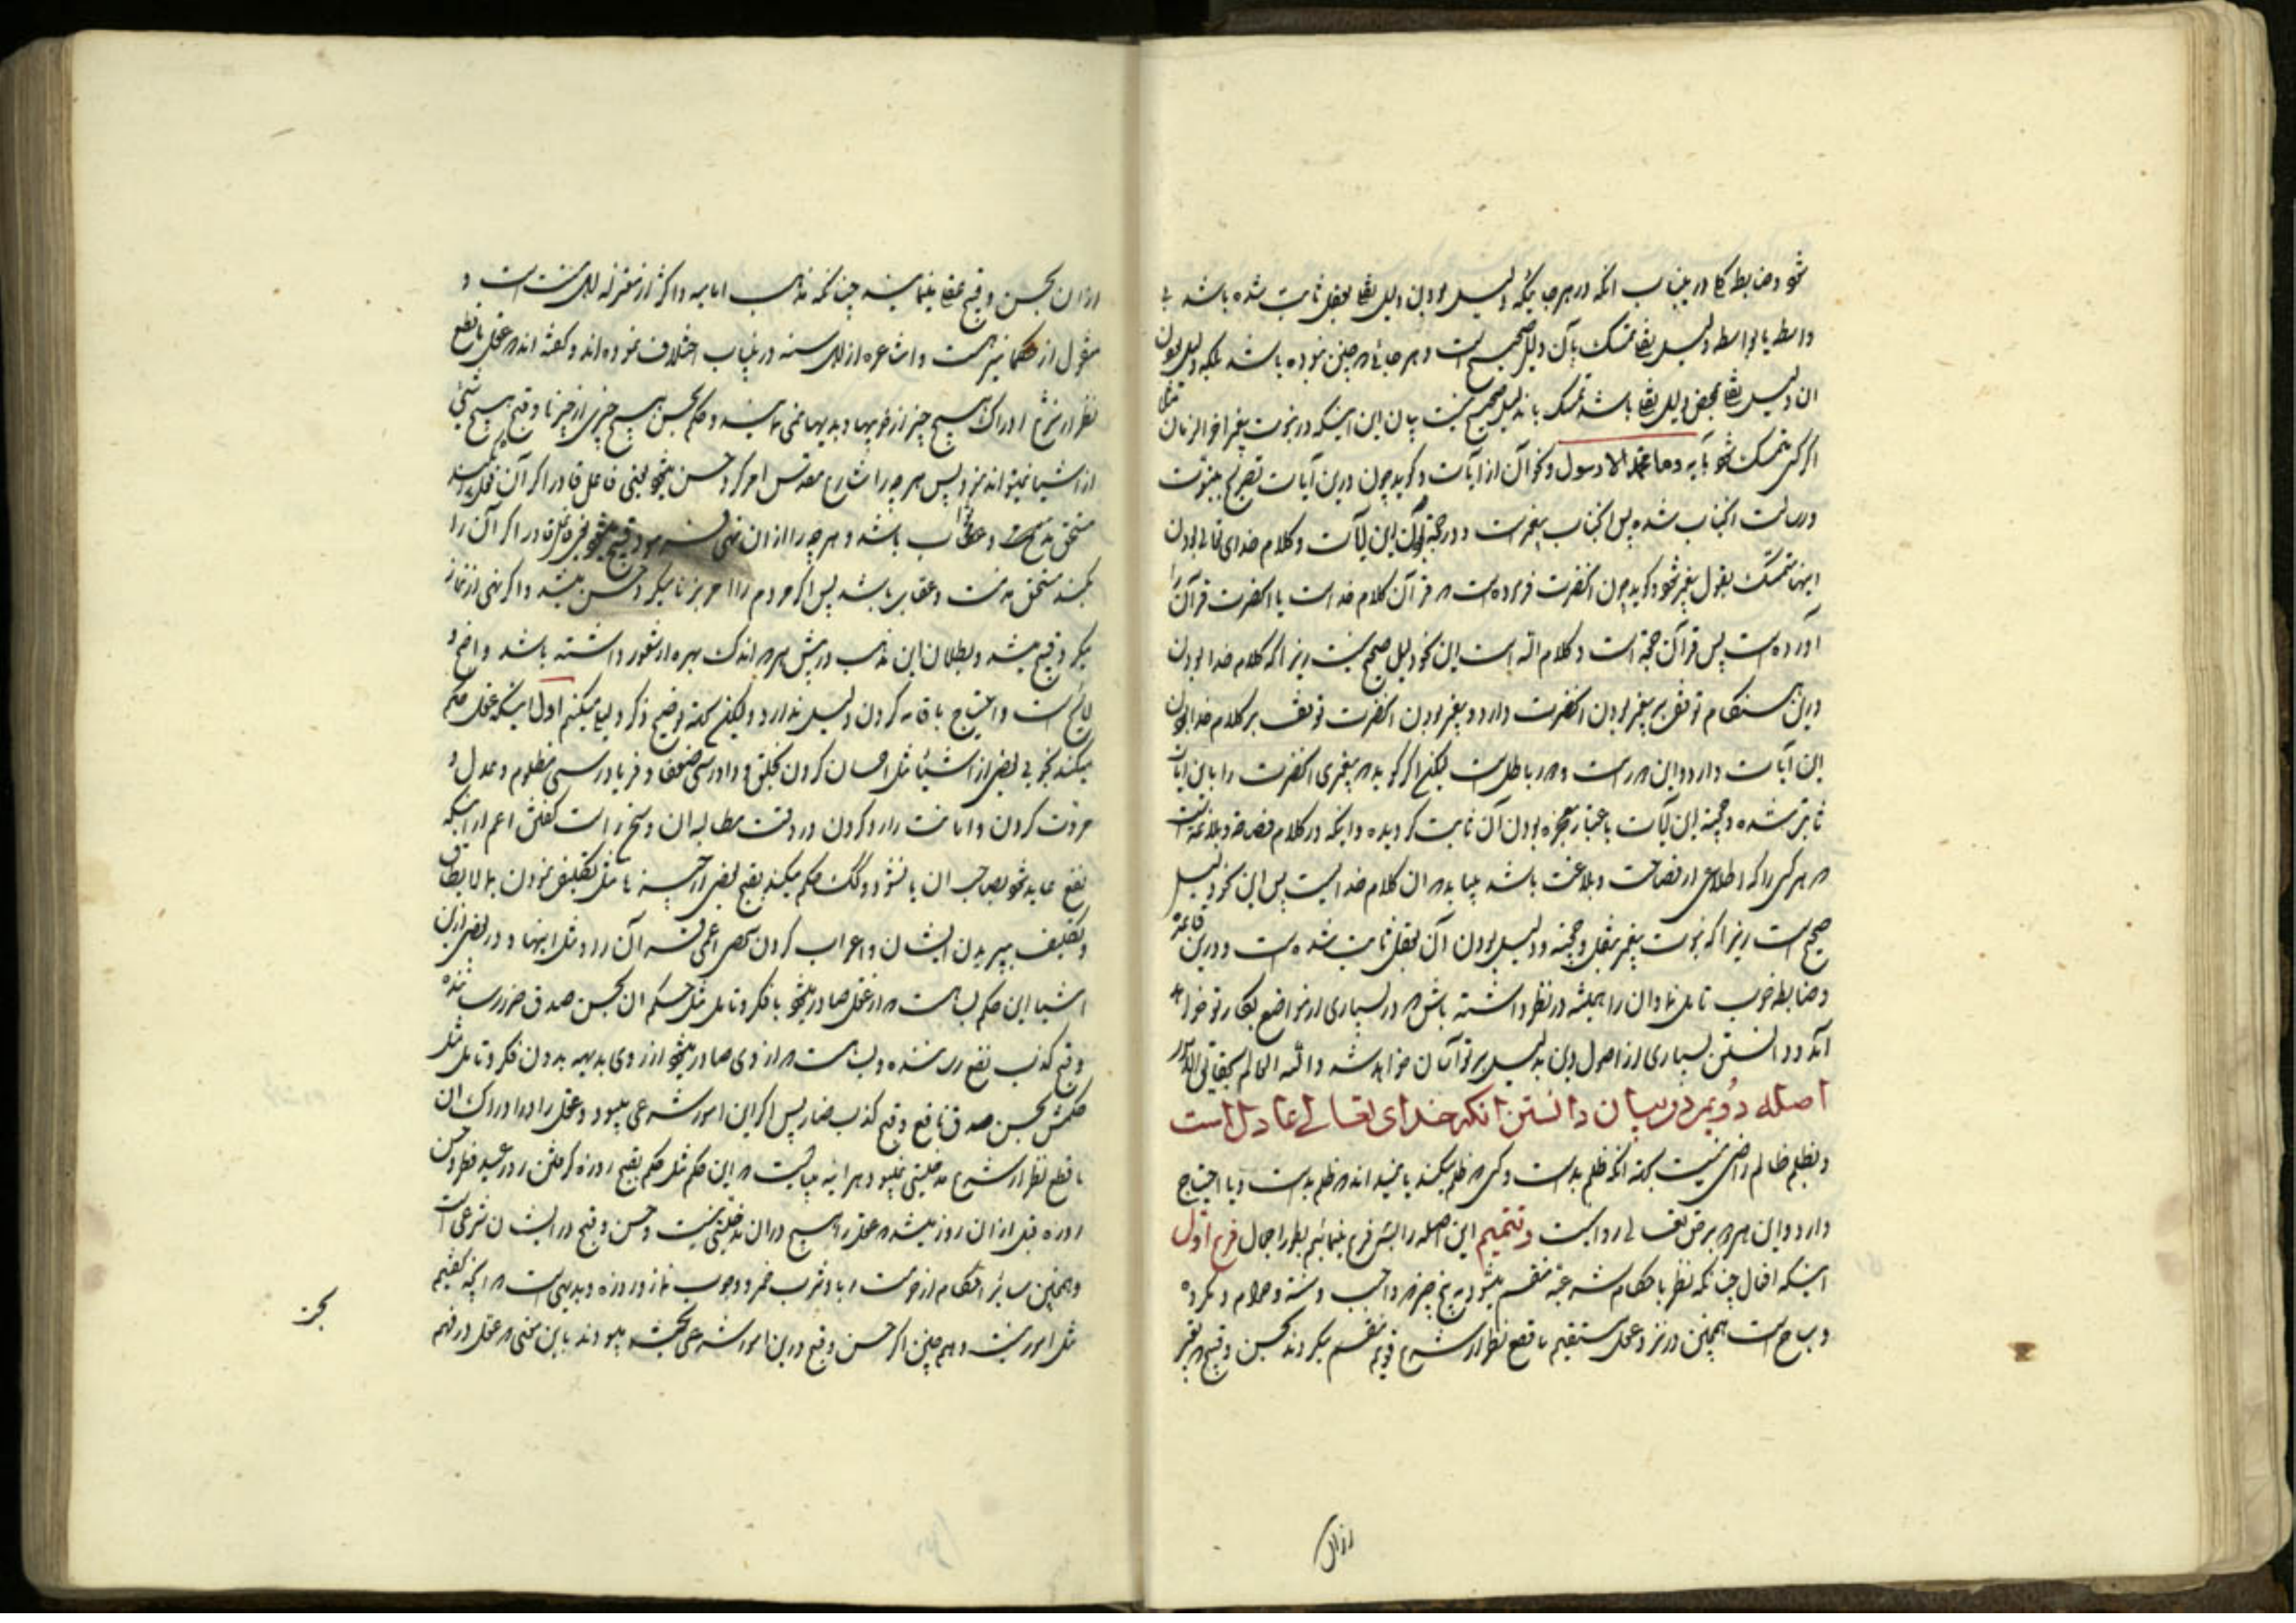 شود و ضابطه کلی درینباب انکه در هر جائیکه دلیل بودن دلیل نقلی بعقل ثابت شده باشد بی
واسطه یا بواسطه دلیل نقلی تمسک بآن دلیل صحیح است و هر جائی که چنین نبوده باشد بلکه دلیل بودن
ان دلیل نقلی بمحض دلیل نقلی باشد تمسک باندلیل صحیح نیست بیان این اینکه در نبوت پیغمبر اخر الزمان مثلا
اگر کسی متمسک شود بآیه وما محمد الا رسول ونحو آن از آیات و کوید چون درین آیات تصریح بنبوت
و رسالت انجناب شده پس انجناب پیغمبرست و در حجة بودن این آیات و کلام خدای تعالی بودن
اینها متمسک بقول پیغمبر شود و کوید چون انحضرت فرموده است که قرآن کلام خداست یا انحضرت قرآن را
آورده است پس قرآن حجة است و کلام الله است این نحو دلیل صحیح نیست زیرا که کلام خدا بودن
درین هنکام توقف بر پیغمبر بودن انحضرت دارد و پیغمبر بودن انحضرت توقف بر کلام خدا بودن
این آیات دارد و این دور است و دور باطل است لیکن اگر کوید که پیغمبری انحضرت را باین ایات
ثابت شده و حجیة این آیات باعتبار معجزه بودن آن ثابت کردیده و اینکه در کلام فصاحة و بلاغة است
که هر کس را که اطلاعی از فصاحت و بلاغت باشد میابد که ان کلام خداست پس این نحو دلیل
صحیح است زیرا که نبوت پیغمبر بعقل و حجیة و دلیل بودن آن بعقل ثابت شده است و درین قاعدة
و ضابطه خوب تامل نما و ان را همیشه در نظر داشته باش که در بسیاری از مواضع بکار تو خواهد
آمد و دانستن بسیاری از اصول دین بدلیل بر تو آسان خواهد شد والله العالم بحقایق الامور
اصل دویم در بیان دانستن انکه خدای تعالی عادل است
و بظلم ظالم راضی نیست بجهة انکه ظلم بد است و کسی که ظلم میکند یا نمیداند که ظلم بد است و یا احتیاج
دارد و این هر دو بر حق تعالی روا نیست و تتمیم این اصل را بشش فرع مینمائیم بطور اجمال فرع اول
اینکه افعال چنانکه نظر باحکام شرعیه منقسم میشود به پنج چیز که واجب و سنة و حرام و مکروه
و مباح است همچنین در نزد عقل مستقیم با قطع نظر از شرع قویم منقسم میکردند بحسن و قبیح که تعبیر
ازان
ازان بحسن و قبح عقلی مینمایند چنانکه مذهب امامیه و اکثر از معتزله اهل سنت است و
منقول از حکما نیز هست و اشاعره از اهل سنه درینباب اختلاف نموده اند و کفته اند که عقل با قطع
نظر از شرع ادراک هیچ چیز از خوبیها و بدیها نمی نماید و حکم بحسن هیچ چیزی از چیزها و قبح هیچ شیئی
از اشیا نمیتواند نمود پس هر چه را شارع مقدس امر کرد حسن میشود یعنی فاعل قادر اگر آن فعل بکند
مستحق مدحت و ثواب باشد و هر چه را ازان نهی فرمود قبیح میشود یعنی فاعل قادر اگر آن را
بکند مستحق مذمت و عقاب باشد پس اگر مردم را امر بزنا میکرد حسن میشد و اگر نهی از نماز
میکرد قبیح میشد و بطلان این مذهب در پیش هر که اندک بهره از شعور داشته باشد واضح و
لایح است و احتیاج باقامه کردن دلیل ندارد ولیکن بجهة توضیح ذکر دلیل میکنیم اول اینکه عقل حکم
میکند بخوبی بعضی از اشیا مثل احسان کردن بخلق و دادرسی ضعفا و فریادرسی مظلوم و عدل و
مروت کردن و امانت را رد کردن در وقت مطالبه ان و سخن راست کفتن اعم از اینکه
نفع عاید شود بصاحب ان یا نشود و کک حکم میکند بقبح بعضی از چیزها مثل تکلیف نمودن بما لا یطاق
و تکلیف بپریدن انسان و اعراب کردن شخص اعمی قرآن را و مثل اینها و در بعضی ازین
اشیا این حکم بسا هست که از عقل صادر میشود با فکر و تامل مثل حکم ان بحسن صدق ضرر رساننده
و قبح کذب نفع رساننده و بسا هست که از وی صادر میشود از روی بدیهه بدون فکر و تامل مثل
حکمش بحسن صدق نافع و قبح کذب ضار پس اگر این امور شرعی میبود و عقل را در ادراک ان
با قطع نظر از شرع مدخلیتی نمیبود هر اینه میبایست که این حکم مثل حکم بقبح روزه کرفتن روز عید فطر و حسن
روزه قبل ازان روز میشد که عقل را هیچ دران مدخلیتی نیست و حسن و قبح در ایشان شرعی است
و همچنین سایر احکام از حرمت ربا و شرب خمر و وجوب نماز و روزه و بدیهی است که آنچه کفتیم
مثل امور نیست و هم چنین اگر حسن و قبح درین امور شرعی بحت میبودند باین معنی که عقل در فهم
بحن